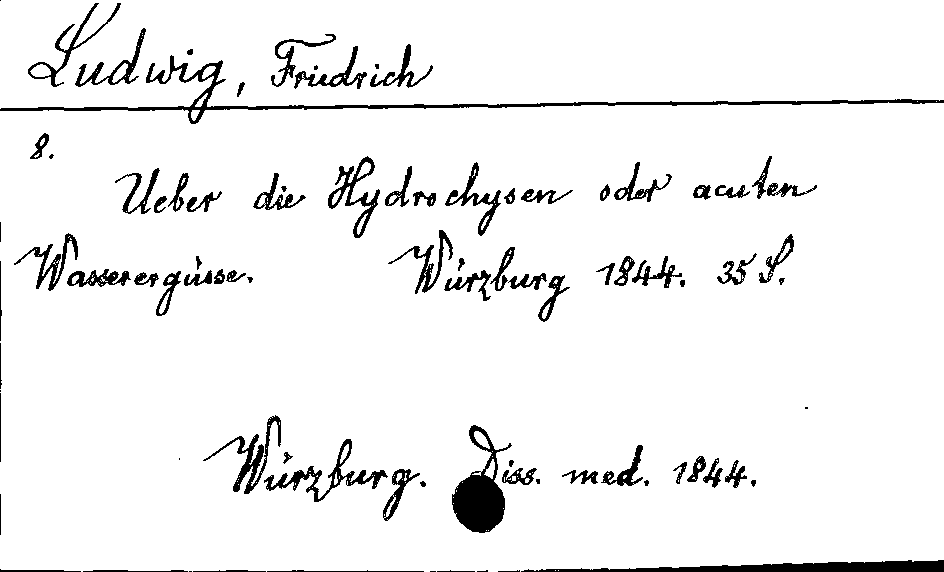 Ludwig, Friedrich
8.
Ueber die Hydrochysen oder acuten
Wasserergüsse. Würzburg 1844. 35 S.
Würzburg. Diss. med. 1844.